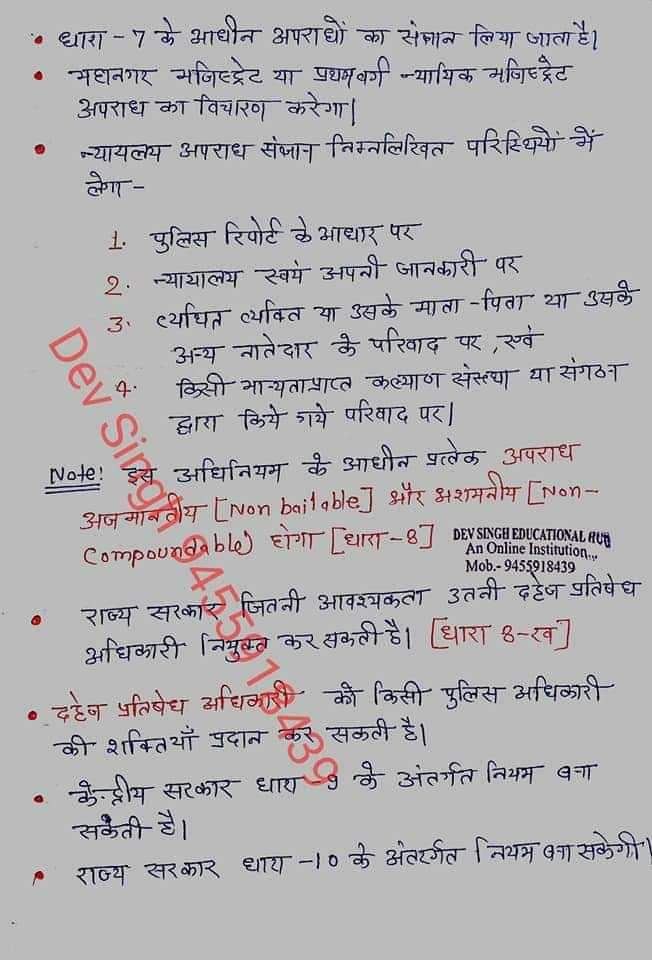 • धारा - 7 के आधीन अपराधों का संज्ञान लिया जाता है।
• महानगर मजिस्ट्रेट या प्रथमवर्ग न्यायिक मजिस्ट्रेट
अपराध का विचारण करेगा।
• न्यायलय अपराध संज्ञान निम्नलिखित परिस्थियों में
लेगा -
1. पुलिस रिपोर्ट के आधार पर
2. न्यायालय स्वयं अपनी जानकारी पर
3. व्यथित व्यक्ति या उसके माता - पिता या उसके
अन्य नातेदार के परिवाद पर, एवं
4. किसी मान्यताप्राप्त कल्याण संस्था या संगठन
द्वारा किये गये परिवाद पर।
Note: इस अधिनियम के आधीन प्रत्येक अपराध
अजमानतीय [Non bailable] और अशमनीय [Non-
Compoundable) होगा [धारा - 8]
DEV SINGH EDUCATIONAL HUB
An Online Institution...
Mob.- 9455918439
• राज्य सरकार जितनी आवश्यकता उतनी दहेज प्रतिषेध
अधिकारी नियुक्त कर सकती है। [धारा 8-ख]
• दहेज प्रतिषेध अधिकारी को किसी पुलिस अधिकारी
की शक्तियाँ प्रदान कर सकती है।
• केन्द्रीय सरकार धारा - 9 के अंतर्गत नियम बना
सकती है।
• राज्य सरकार धारा - 10 के अंतर्गत नियम बना सकेगी।
Dev Singh 9455918439